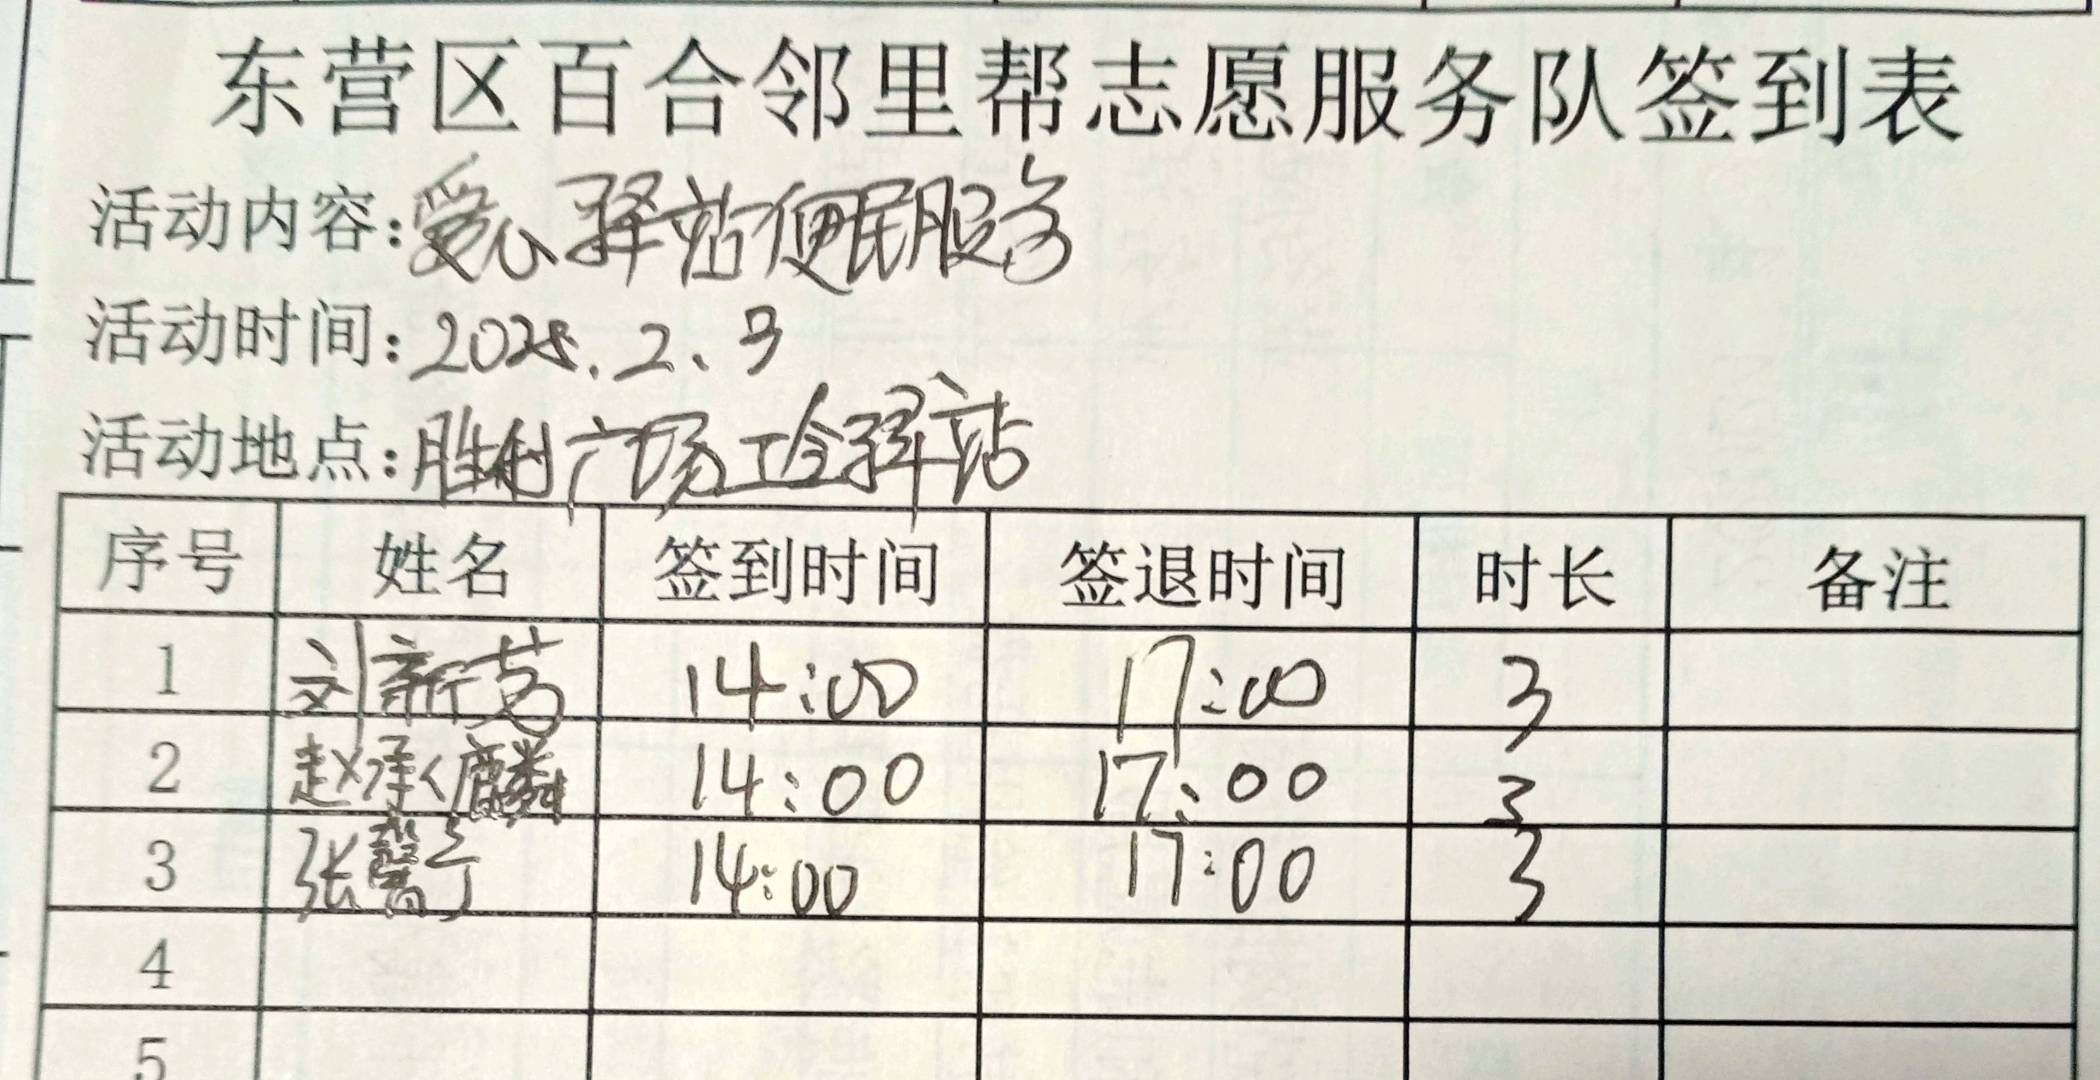 东营区百合邻里帮志愿服务队签到表
活动内容:爱心驿站便民服务
活动时间:2025.2.3
活动地点:胜利广场工会驿站
序号 姓名 签到时间 签退时间 时长 备注
1 刘新 14:00 17:00 3
2 赵承麒麟 14:00 17:00 3
3 张馨 14:00 17:00 3
4
5